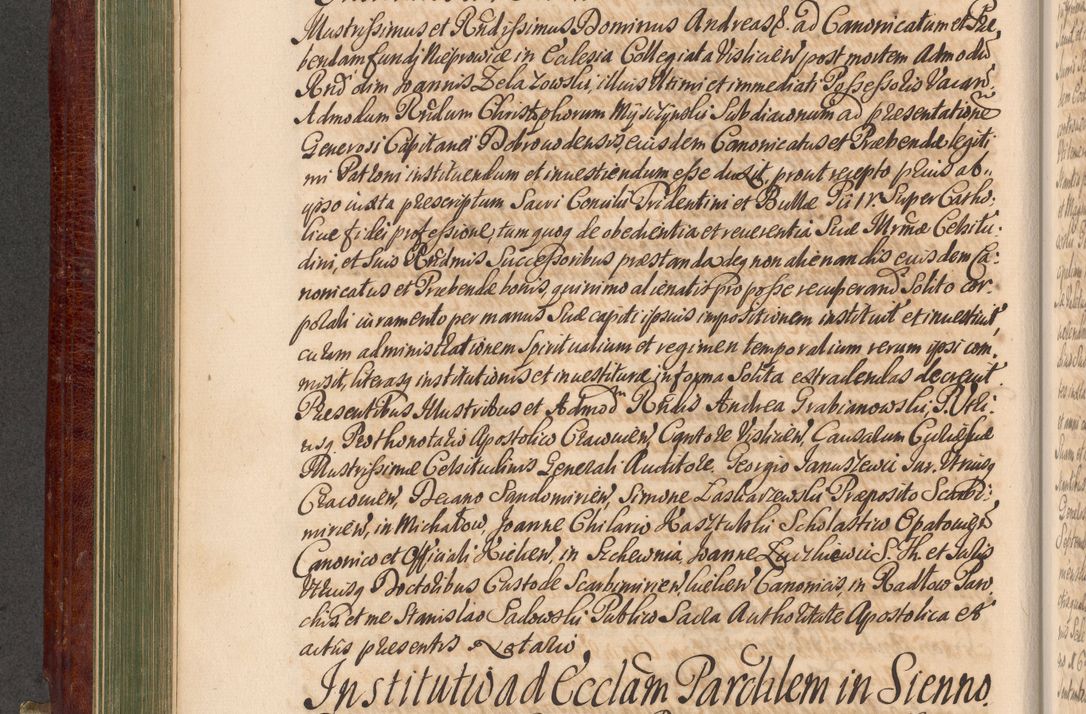 Illustrissimus et Rndissimus Dominus Andreas &. ad Canonicatum et Prae
bendam fundi Nieprowice in Ecclesia Collegiata Vislicien, post mortem Admodu
Rnd olim Joannis Zelazowski, illius Ultimi et immediati Possessoris Vacan
Admodum Rndum Christophorum Myszynski Subdiaconum ad presentatione
Generosi Capitanei Dobrouodensis, eiusdem Canonicatus et Praebendae legiti
mi Patroni instituendum et inuestiendum esse duxit, prout recepto prius ab
ipso iuxta prescriptum Sacri Concilii Tridentini et Bullae Pii IV. Super Catho:
licae fidei professione, tum quoq de obedientia et reuerentia Suae Illrmae Celsitu:
dini, et Suis Rndmis Successoribus praestanda, deq non alienandis eiusdem Ca:
nonicatus et Praebendae bonis, quinimo alienatis pro posse recuperand Solito cor:
porali iuramento per manus Suae capiti ipsius impositionem instituit et inuestiuit,
curam administrationem Spiritualium et regimen temporalium rerum ipsi com:
misit, literasq institutionis et inuestiturae in forma Solita extradendas decreuit.
Presentibus Illustribus et Admod Rndis Andrea Grabianowski, J. Utri:
usq Prothonotario Apostolico Cracouien, Cantore Vislicien, Causarum Curiae Suae
Illustrissimae Celsitudinis Generali Auditore, Georgio Januszewic Jur. Utriusq
Cracouien, Decano Sandomirien, Simone Laskarzewski Praeposito Scarbi:
mirien, in Michałow, Joanne Chilario Kasztulski Scholastico Opatouien
Canonico et Officiali Kielcen, in Szchewnia, Joanne S. Th. et Juris
Utriusq Doctoribus Custode Scarbimirien, Kielcen Canonicis, in Radłow Paro
chis et me Stanislao Sadowski Publico Sacra Authoritate Apostolica et
actus presentis Notario.
Institutio ad Ecclam Parochlem in Sienno.